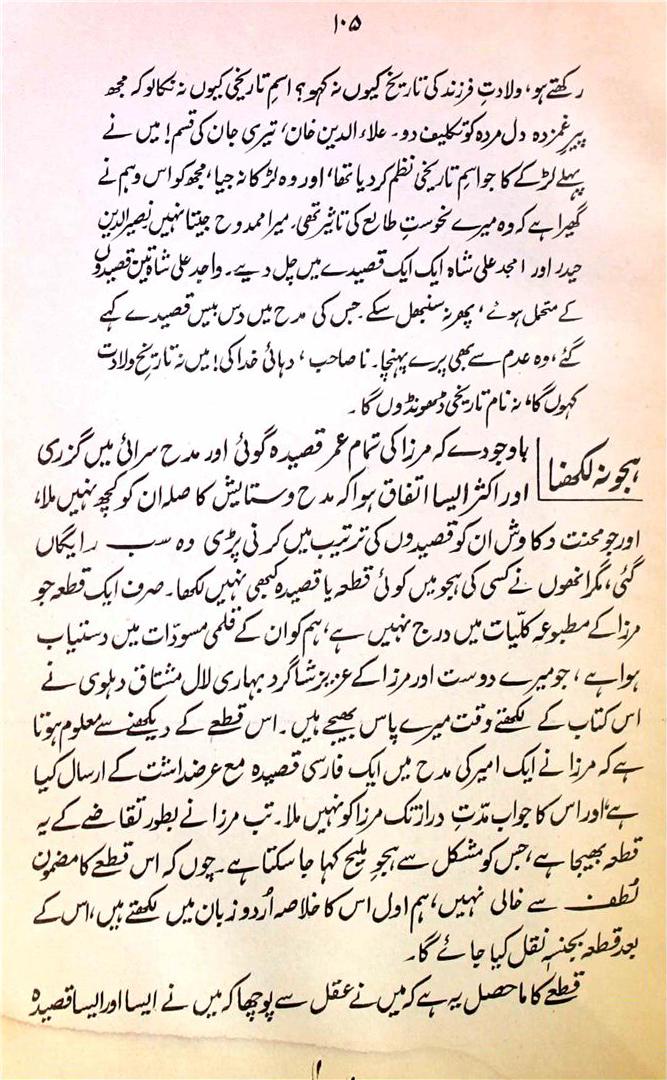 ۱۰۵
رکھتے ہو، ولادتِ فرزند کی تاریخ کیوں نہ کہو؟ اسمِ تاریخی کیوں نہ نکالو کہ مجھ
پیرِ غمزدہ دل مردہ کو تکلیف دو۔ علاء الدین خان، تیری جان کی قسم! میں نے
پہلے لڑکے کا جو اسمِ تاریخی نظم کر دیا تھا، اور وہ لڑکا نہ جیا، مجھ کو اس وہم نے
گھیرا ہے کہ وہ میرے نحوستِ طالع کی تاثیر تھی۔ میرا ممدوح جیتا نہیں۔ نصیرالدین
حیدر اور امجد علی شاہ ایک ایک قصیدے میں چل دیے۔ واجد علی شاہ تین قصیدوں
کے متحمل ہوئے، پھر نہ سنبھل سکے۔ جس کی مدح میں دس بیس قصیدے کہے
گئے، وہ عدم سے بھی پرے پہنچا۔ نا صاحب، دہائی خدا کی! میں نہ تاریخِ ولادت
کہوں گا، نہ نامِ تاریخی ڈھونڈوں گا۔
ہجو نہ لکھنا
باوجودے کہ مرزا کی تمام عمر قصیدہ گوئی اور مدح سرائی میں گزری
اور اکثر ایسا اتفاق ہوا کہ مدح وستایش کا صلہ ان کو کچھ نہیں ملا،
اور جو محنت و کاوش ان کو قصیدوں کی ترتیب میں کرنی پڑی وہ سب رایگاں
گئی، مگر انھوں نے کسی کی ہجو میں کوئی قطعہ یا قصیدہ کبھی نہیں لکھا۔ صرف ایک قطعہ جو
مرزا کے مطبوعہ کلّیات میں درج نہیں ہے، ہم کو ان کے قلمی مسودّات میں دستیاب
ہوا ہے، جو میرے دوست اور مرزا کے عزیز شاگرد بہاری لال مشتاق دہلوی نے
اس کتاب کے لکھتے وقت میرے پاس بھیجے ہیں۔ اس قطعے کے دیکھنے سے معلوم ہوتا
ہے کہ مرزا نے ایک امیر کی مدح میں ایک فارسی قصیدہ مع عرضداشت کے ارسال کیا
ہے، اور اس کا جواب مدّتِ دراز تک مرزا کو نہیں ملا۔ تب مرزا نے بطور تقاضے کے یہ
قطعہ بھیجا ہے، جس کو مشکل سے ہجوِ ملیح کہا جا سکتا ہے۔ چوں کہ اس قطعے کا مضمون
لُطف سے خالی نہیں، ہم اول اس کا خلاصہ اُردو زبان میں لکھتے ہیں، اس کے
بعد قطعہ بجنسہٖ نقل کیا جائے گا۔
قطعے کا ماحصل یہ ہے کہ میں نے عقل سے پوچھا کہ میں نے ایسا اور ایسا قصیدہ